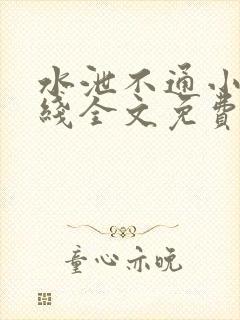 水泄不通小
线全文免费
童心亦晚